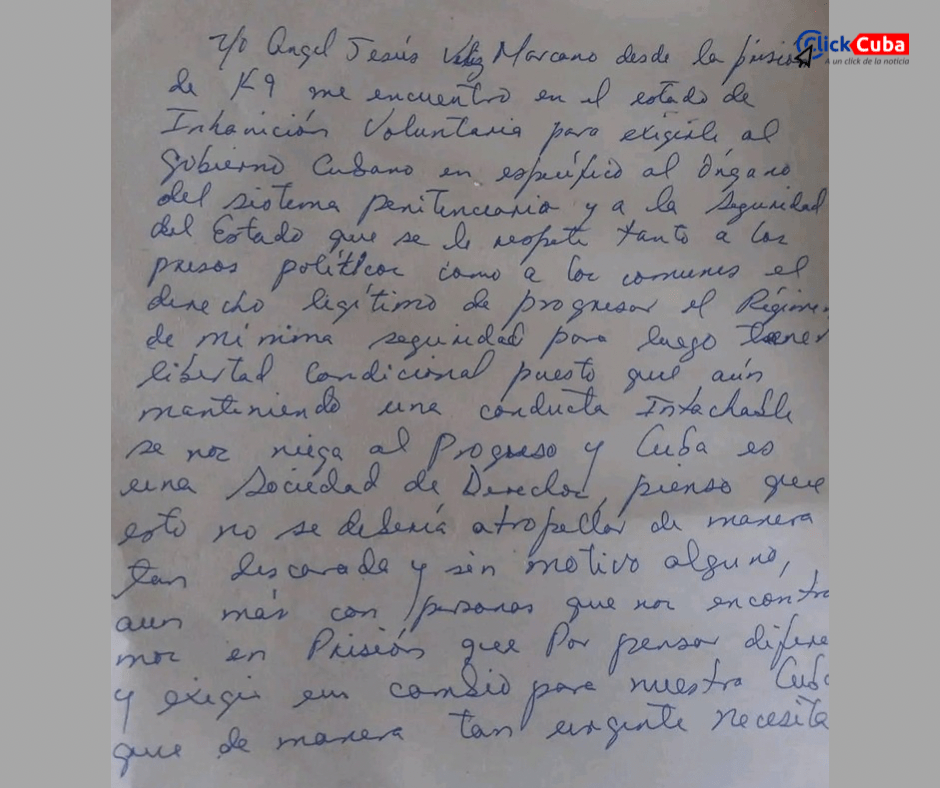 ClickCuba
A un click de la noticia
Yo Angel Jesús Véliz Marcano desde la prisión
de K9 me encuentro en el estado de
Inhanición Voluntaria para exigirle al
gobierno Cubano en específico al Órgano
del sistema penitenciario y a la Seguridad
del Estado que se le respete tanto a los
presos políticos como a los comunes el
derecho legítimo de progresar el Régimen
de mínima seguridad para luego tener
libertad Condicional puesto que aún
manteniendo una conducta Intachable
se nos niega al Progreso y Cuba es
una Sociedad de Derechos, pienso que
esto no se debería atropellar de manera
tan descarada y sin motivo alguno,
aun más con personas que nos encontra
mos en Prisión que Por pensar difere
y exigir un cambio para nuestra Cuba
que de manera tan urgente necesita